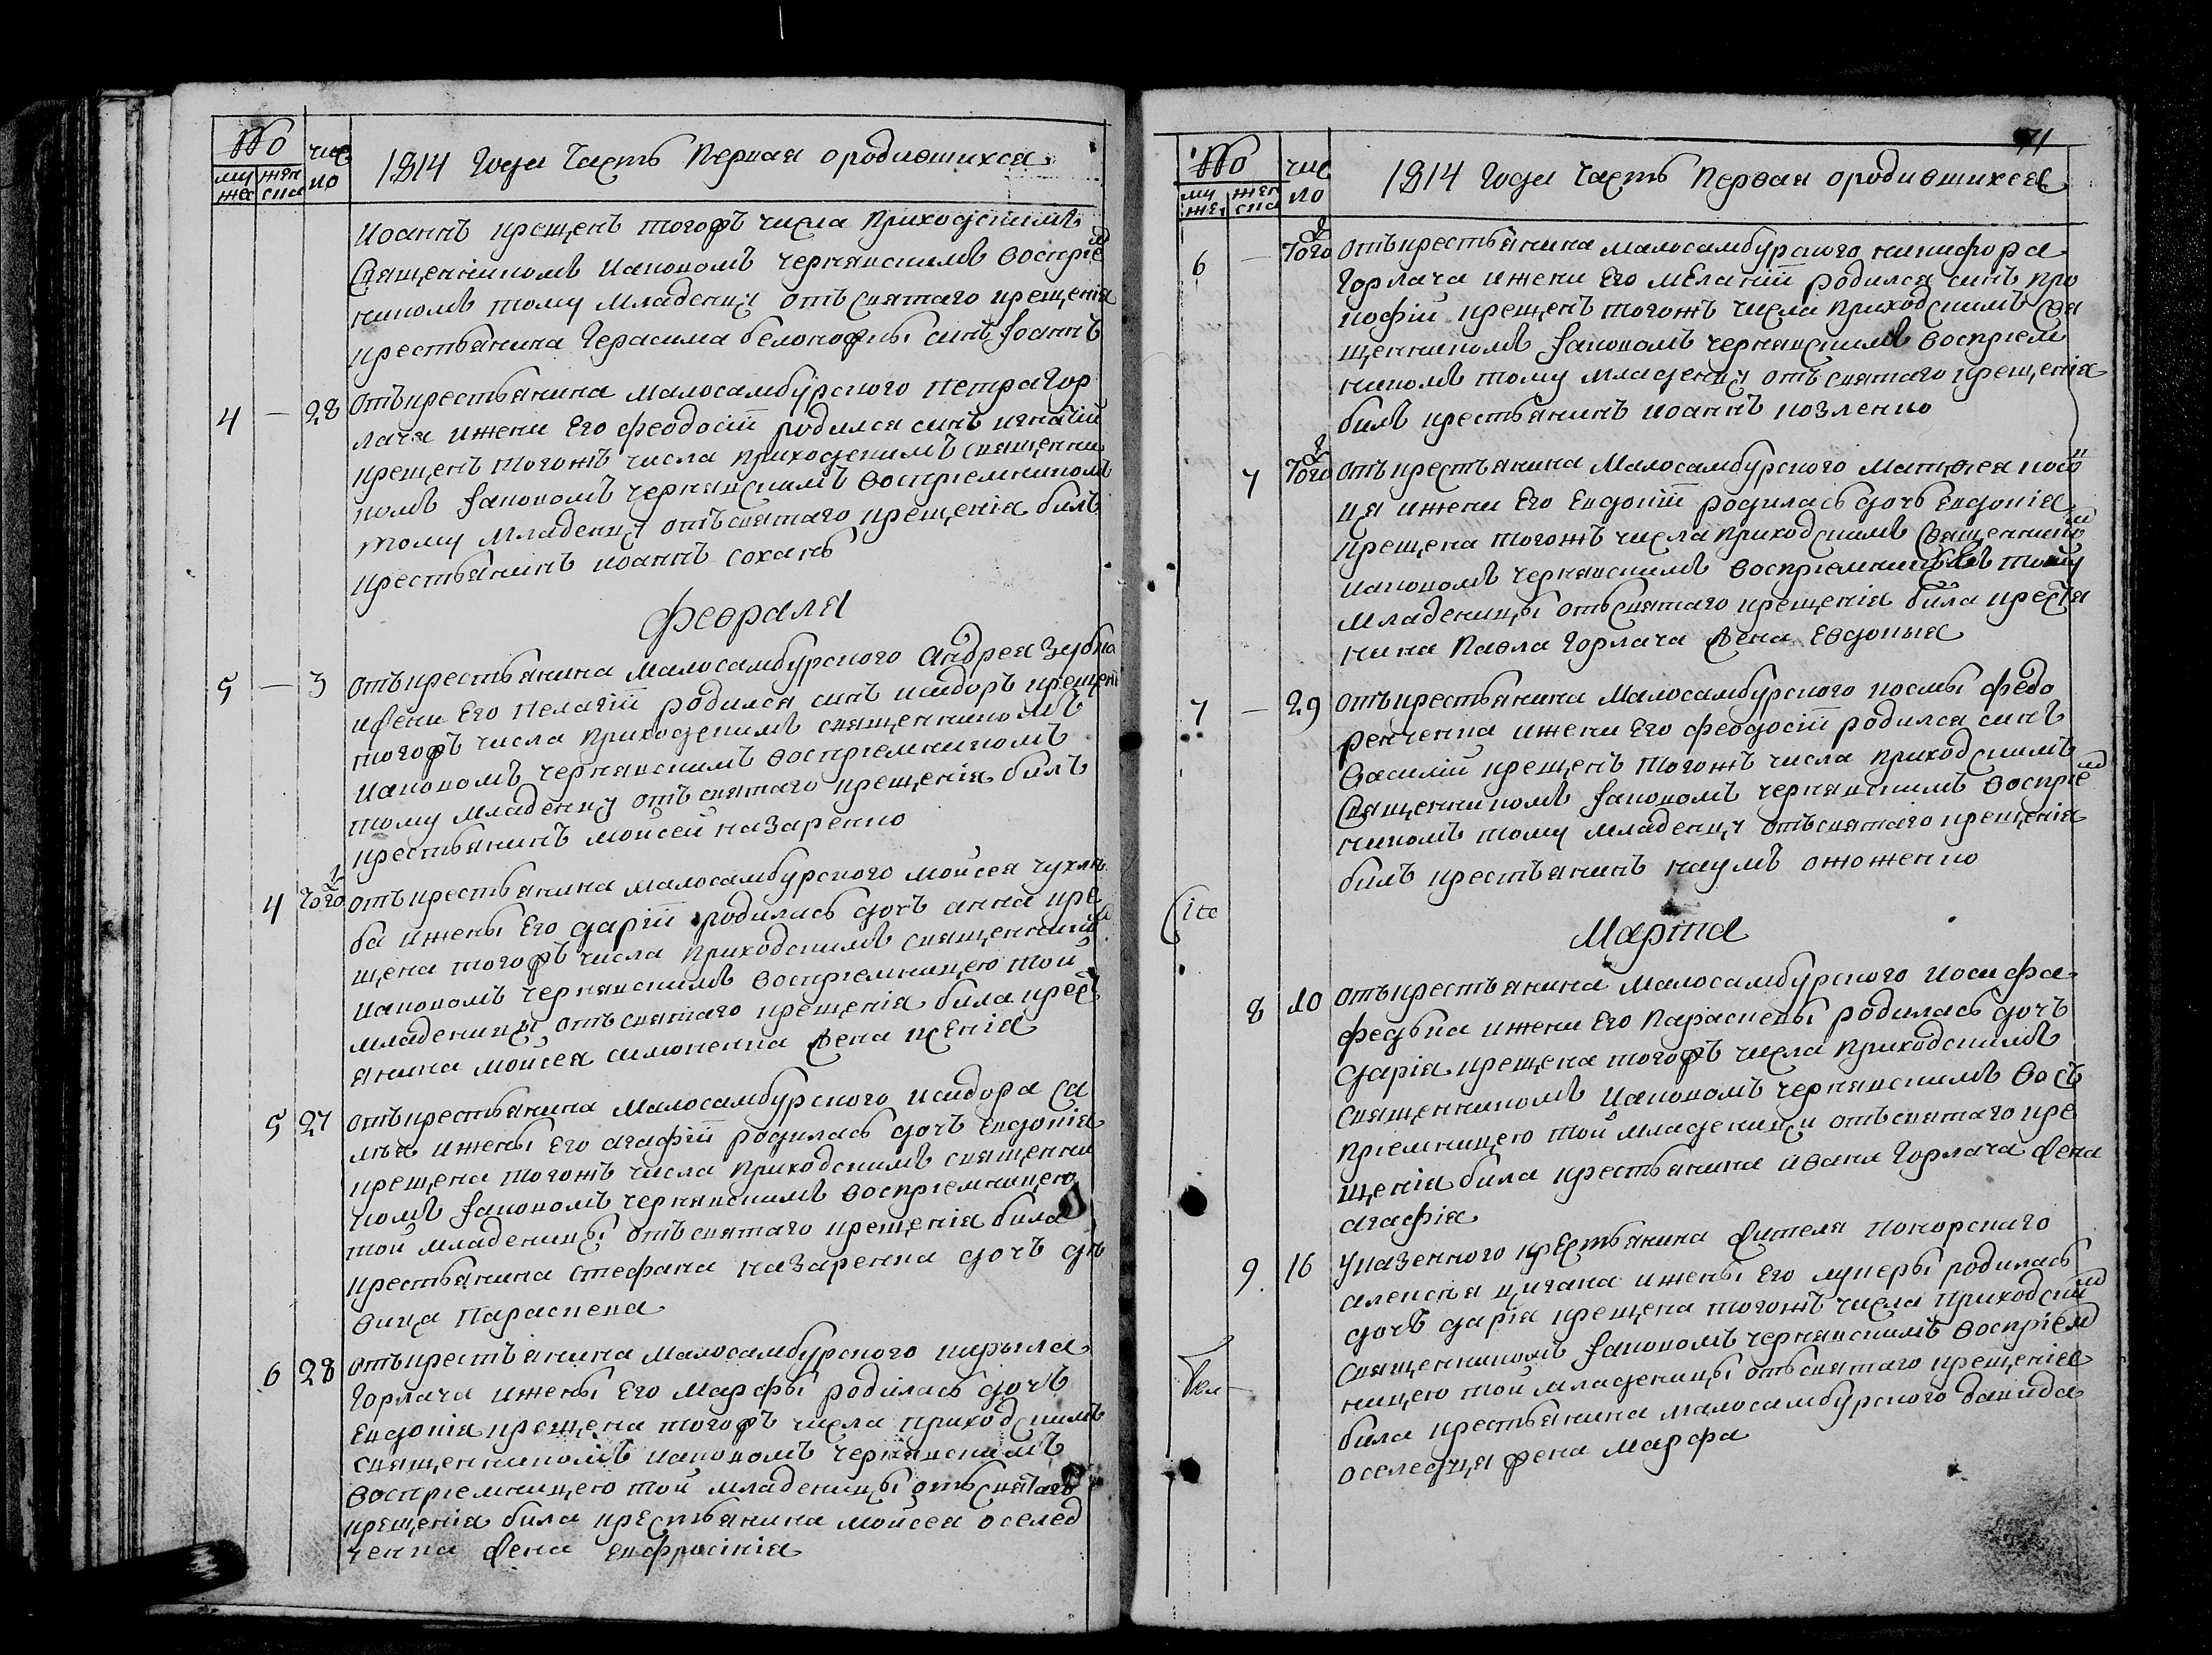 № чис
му жен ло
жес ска
1814 Года Часть Первая о родившихся
Иоаннъ крещенъ тогожъ числа приходскимъ
Священникомъ Иаковомъ Чернявскимъ Восприем
никомъ тому Младенцу отъ святаго крещенія
крестьянина Герасима Белоножки синъ Іоаннъ
4 — 28 отъ крестьянина Малосамбурского Петра Гор
лача и жени Его Феодосіи родился синъ Игнатій
крещенъ тогожъ числа приходскимъ священни
комъ Іаковомъ Чернявскимъ Восприемникомъ
тому Младенцу отъ святаго крещенія билъ
крестьянинъ Иоаннъ Сохань
Февраля
5 — 3 отъ крестьянина Малосамбурского Андрея Зубка
и жени Его Пелагіи родился синъ Исидоръ крещен
тогожъ числа приходскимъ священникомъ
Иаковомъ Чернявскимъ Восприемникомъ
тому Младенцу отъ святаго крещенія билъ
крестьянинъ Мойсей Назаренко
4 Того ж отъ крестьянина Малосамбурского Мойсея Чухлѣ
ба и жены Его Дарій родилась дочь Анна кре
щена тогожъ числа приходскимъ священником
Иаковомъ Чернявскимъ Восприемницею той
младеницы отъ святаго крещенія била крест
янина Мойсея Симоненка жена Ксенія
5 27 отъ крестьянина Малосамбурского Исидора Са
мка и жены Его Агафіи родилась дочъ Евдокія
крещена тогожъ числа приходскимъ священни
комъ Іаковомъ Чернявскимъ Восприемницею
той младеницы отъ святаго крещенія била
крестьянина Стефана Назаренка дочъ дѣ
вица Параскева
6 28 отъ крестьянина Малосамбурского Кирыла
Горлача и жены Его Марфы родилась дочъ
Евдокія крещена тогожъ числа приходскимъ
священникомъ Иаковомъ Чернявскимъ
Восприемницею той младеницы отъ святаго
крещенія била крестьянина Мойсея Оселед
ченка жена Евфросинія
71
№ чис
му жен ло
жес ска
1814 Года Часть Первая о родившихся
6 — Того ж отъ крестьянина Малосамбурского Никифора
Горлача и жени Его Меланіи родился синъ Про
кофій крещенъ тогожъ числа приходскимъ Свя
щенникомъ Іаковомъ Чернявскимъ Восприем
никомъ тому младенцу отъ святаго крещенія
билъ крестьянинъ Иоаннъ Козленко
7 Того ж отъ крестьянина Малосамбурского Матфея
ця и жени Его Евдокіи родилась дочь Евдокія
крещена тогожъ числа приходскимъ Священником
Иаковомъ Чернявскимъ Восприемницею тому
Младеницы отъ святаго крещенія била крестя
нина Павла Горлача жена Евдокыя
7 — 29 отъ крестьянина Малосамбурского Космы Федо
ренченка и жени Его Феодосіи родился синъ
Василій крещенъ тогожъ числа приходскимъ
Священникомъ Іаковомъ Чернявскимъ Восприем
никомъ тому младенцу отъ святаго крещенія
билъ крестьянинъ Наумъ Ожоженко
Марта
8 10 отъ крестьянина Малосамбурского Иосифа
Федька и жени Его Параскевы родилась дочъ
Дарія крещена тогожъ числа приходскимъ
священникомъ Иаковомъ Чернявскимъ Восъ
приемницею той младеници отъ святаго кре
щенія била крестьянина Ивана Горлача жена
Агафія
9 16 У казенного крестьянина жителя Понорского
Алексѣя Цигана и жены Его Лукеры родилась
дочъ Дарія крещена тогожъ числа приходским
священникомъ Іаковомъ Чернявскимъ Восприем
ницею той младеницы отъ святаго крещенія
била крестьянина Малосамбурского Давида
Оселедця жена Марфа